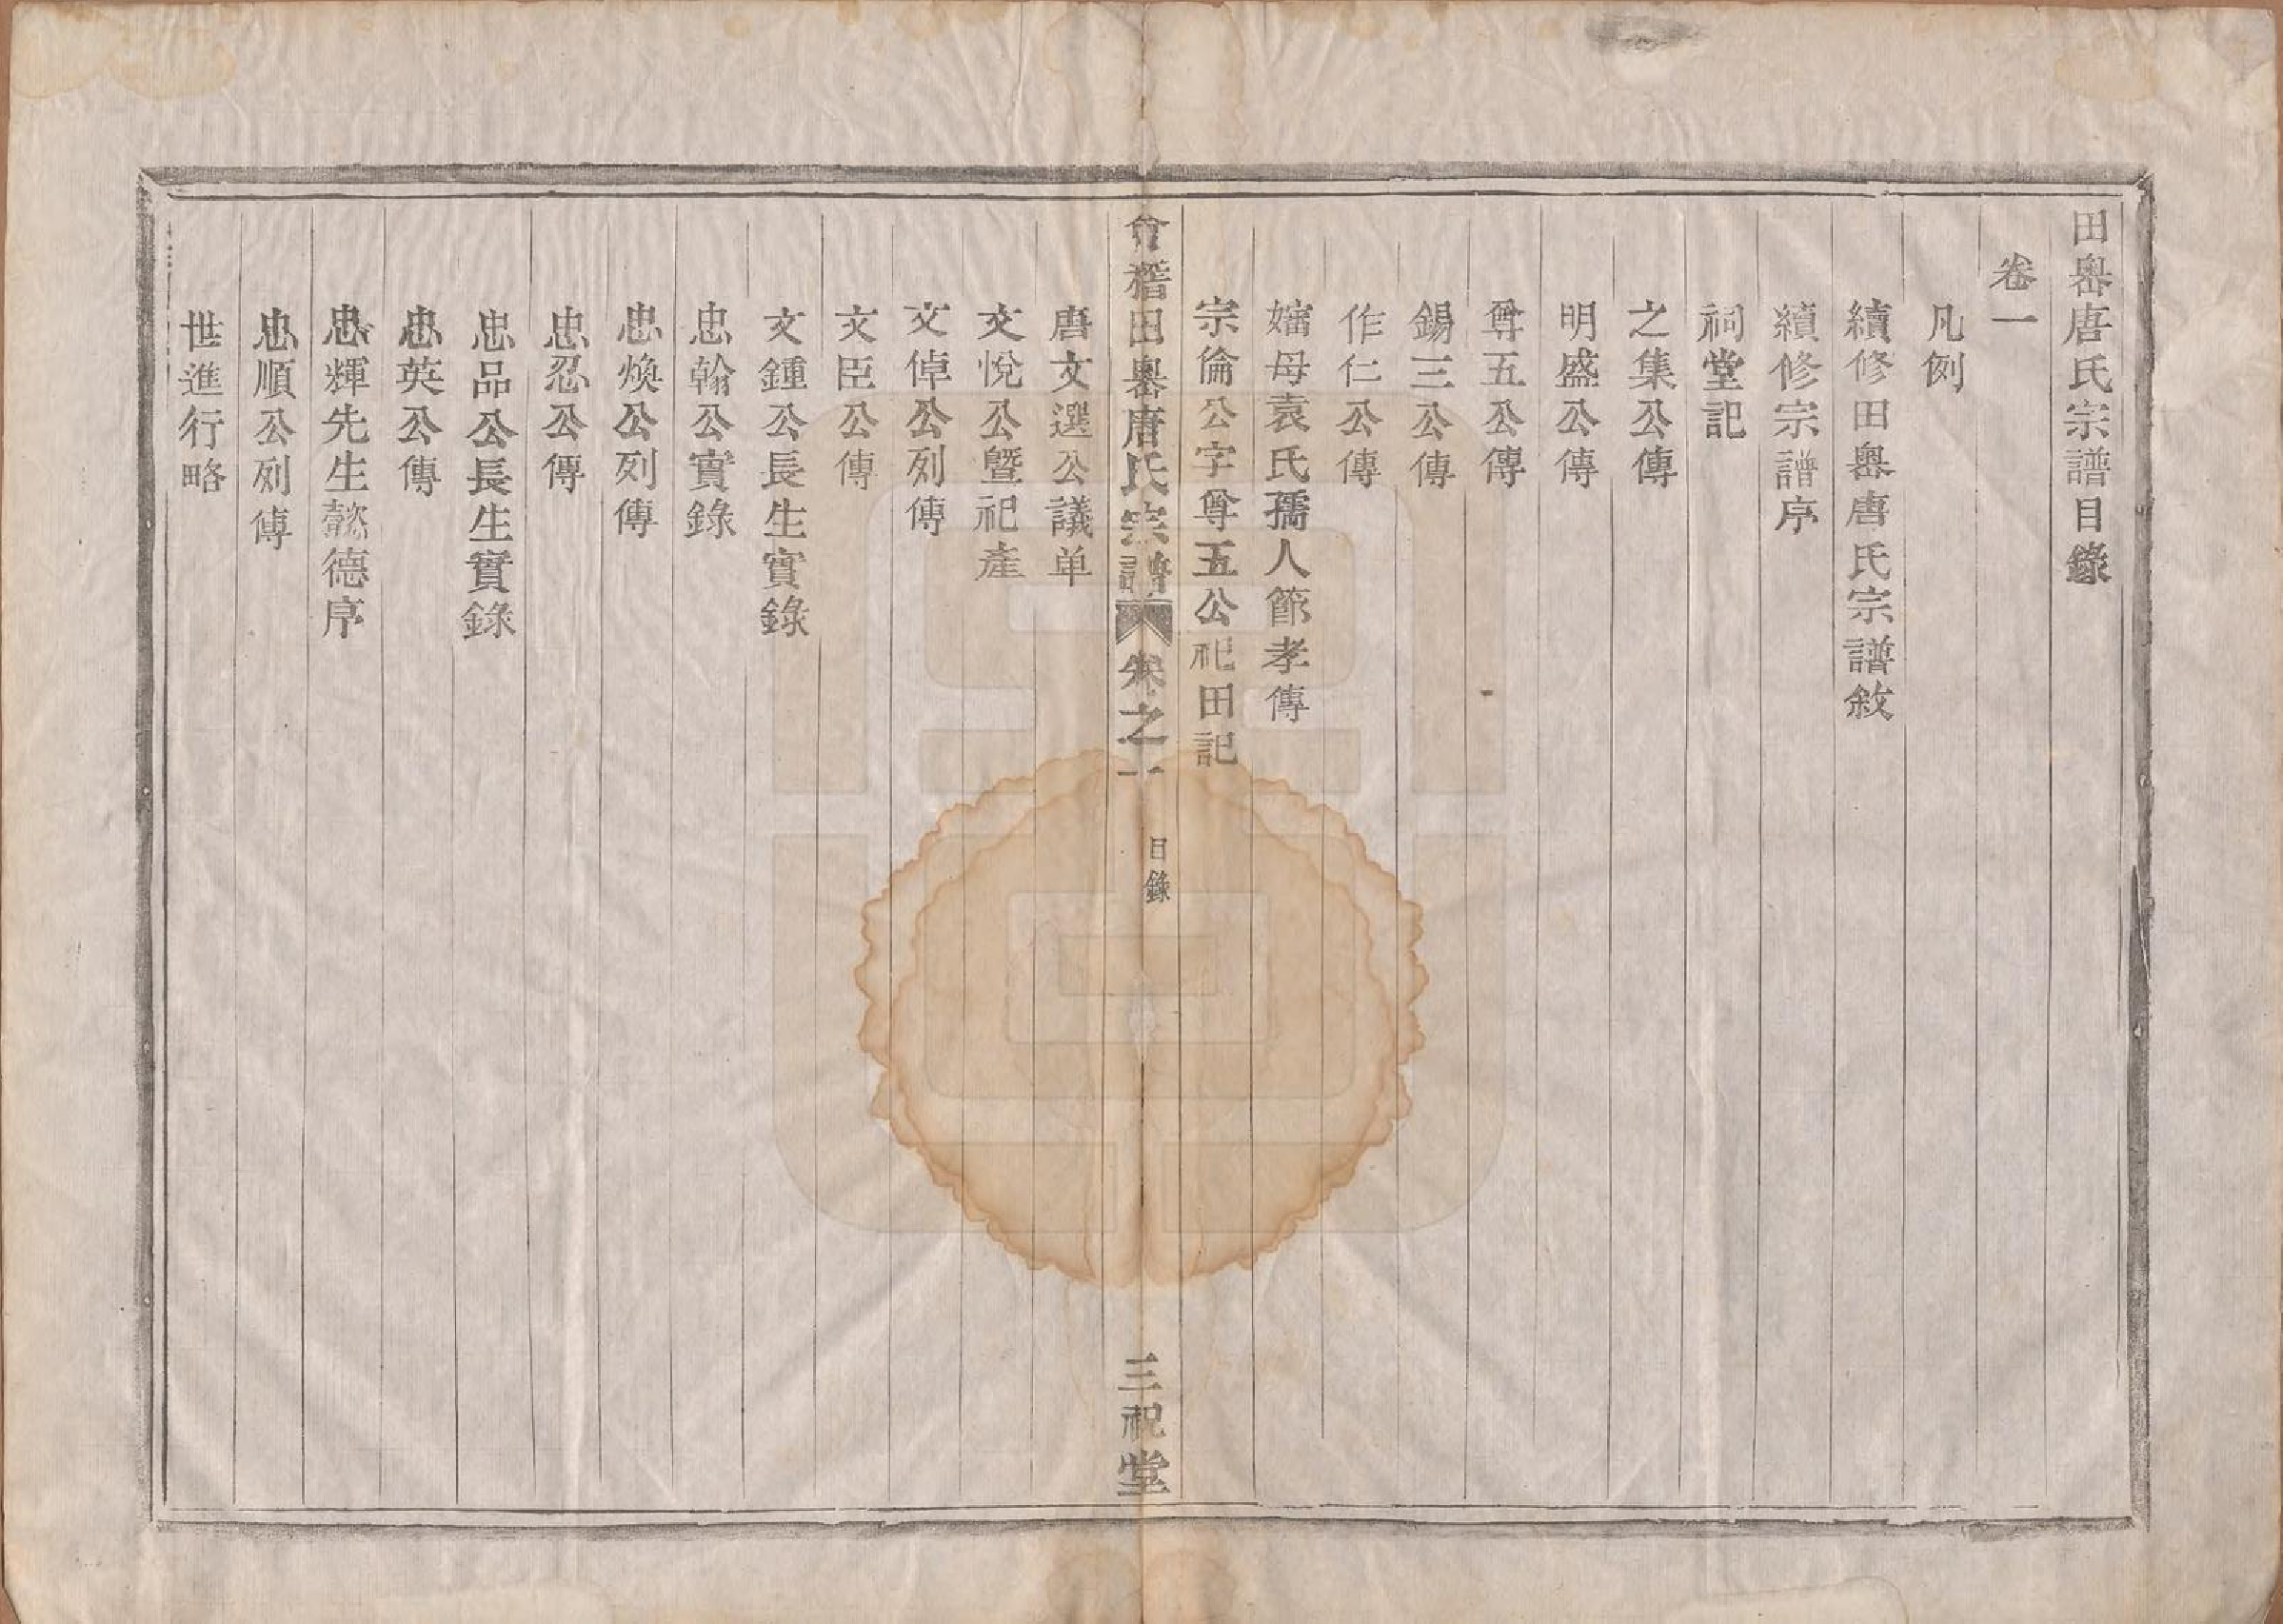 田㠗唐氏宗譜目錄
卷一
凡例
續修田㠗唐氏宗譜敘
續修宗譜序
祠堂記
之集公傳
明盛公傳
尊五公傳
錫三公傳
作仁公傳
嬸母袁氏孺人節孝傳
宗倫公字尊五公祀田記
會稽田㠗唐氏宗譜 卷之一 目錄 三祝堂
唐文選公議单
文悅公暨祀產
文倬公列傳
文臣公傳
文鍾公長生實錄
忠翰公實錄
忠煥公列傳
忠忍公傳
忠品公長生實錄
忠英公傳
忠輝先生懿德序
忠順公列傳
世進行略